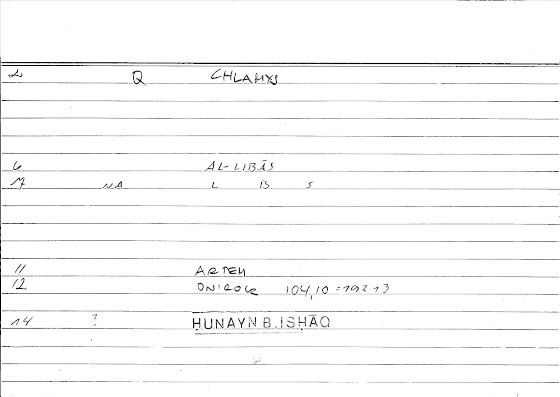 2 Q CHLAMYS
6 AL-LIBĀS
17 NA L B S
11 ARTEM
12 ONIROCR 104,10 = 192 13
14 ? ḤUNAYN B. ISḤĀQ